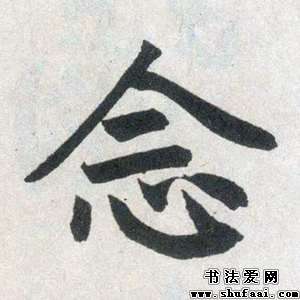 念
书法爱网
www.shufaai.com